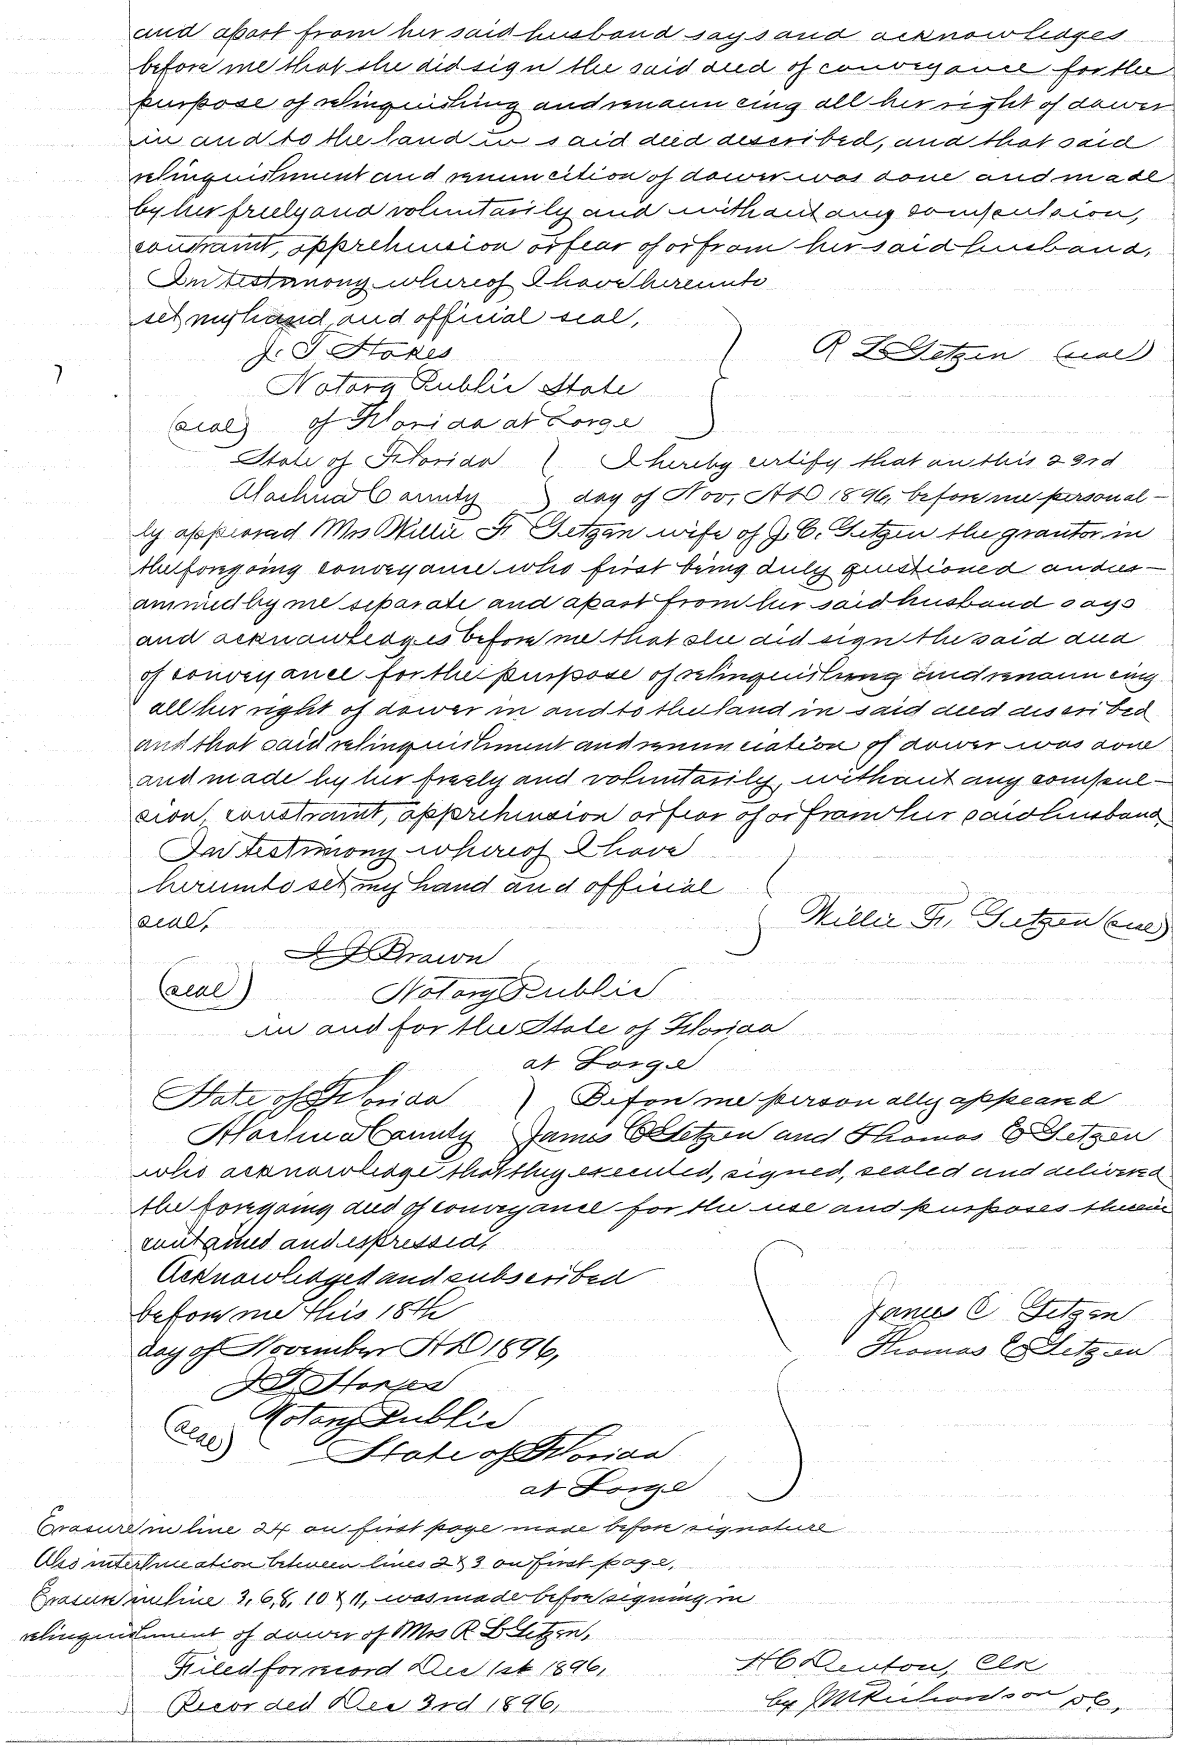 and apart from her said husband says and acknowledges
before me that she did sign the said deed of conveyance for the
purpose of relinquishing and renouncing all her right of dower
in and to the land in said deed described, and that said
relinquishment and renuncition of dower was done and made
by her freely and voluntarily and without any compulsion,
constraint, apprehension or fear of or from her said husband.
In testimony whereof I have hereunto
set my hand and official seal,
J. T. Stokes
R L Getzen (seal)
Notary Public State
(seal) of Florida at Large
State of Florida I hereby certify that on this 23rd
Alachua County day of Nov, A.D 1896, before me personal-
ly appeared Mrs Willie F. Getzen wife of J. C. Getzen the grantor in
the foregoing conveyance who first being duly questioned and ex-
ammied by me separate and apart from her said husband says
and acknowledges before me that she did sign the said deed
of conveyance for the purpose of relinquishing and renouncing
all her right of dower in and to the land in said deed described
and that said relinquishment and renunciation of dower was done
and made by her freely and voluntarily, without any compul-
sion, constraint, apprehension or fear of or from her said husband,
In testimony whereof I have
hereunto set my hand and official
seal,
Willie F. Getzen (seal)
Brown
(seal) Notary Public
in and for the State of Florida
at Large
State of Florida Before me personally appeared
Alachua County James C Getzen and Thomas E Getzen
who acknowledge that they executed, signed, sealed and delivered
the foregoing deed of conveyance for the use and purposes therein
contained and expressed,
Acknowledged and subscribed
before me this 18th
day of November A D 1896,
James C Getzen
Thomas E Getzen
J T Stokes
(seal) Notary Public
State of Florida
at Large
Erasure in line 24 on first page made before signature
Also interlineation between lines 2 & 3 on first page,
Erasure in line 3, 6, 8, 10 & 11, was made before signing in
relinquishment of dower of Mrs R L Getzen,
Filed for record Dec 1st 1896, H C Denton, Clk
Recorded Dec 3rd 1896, by M Richardson D C,